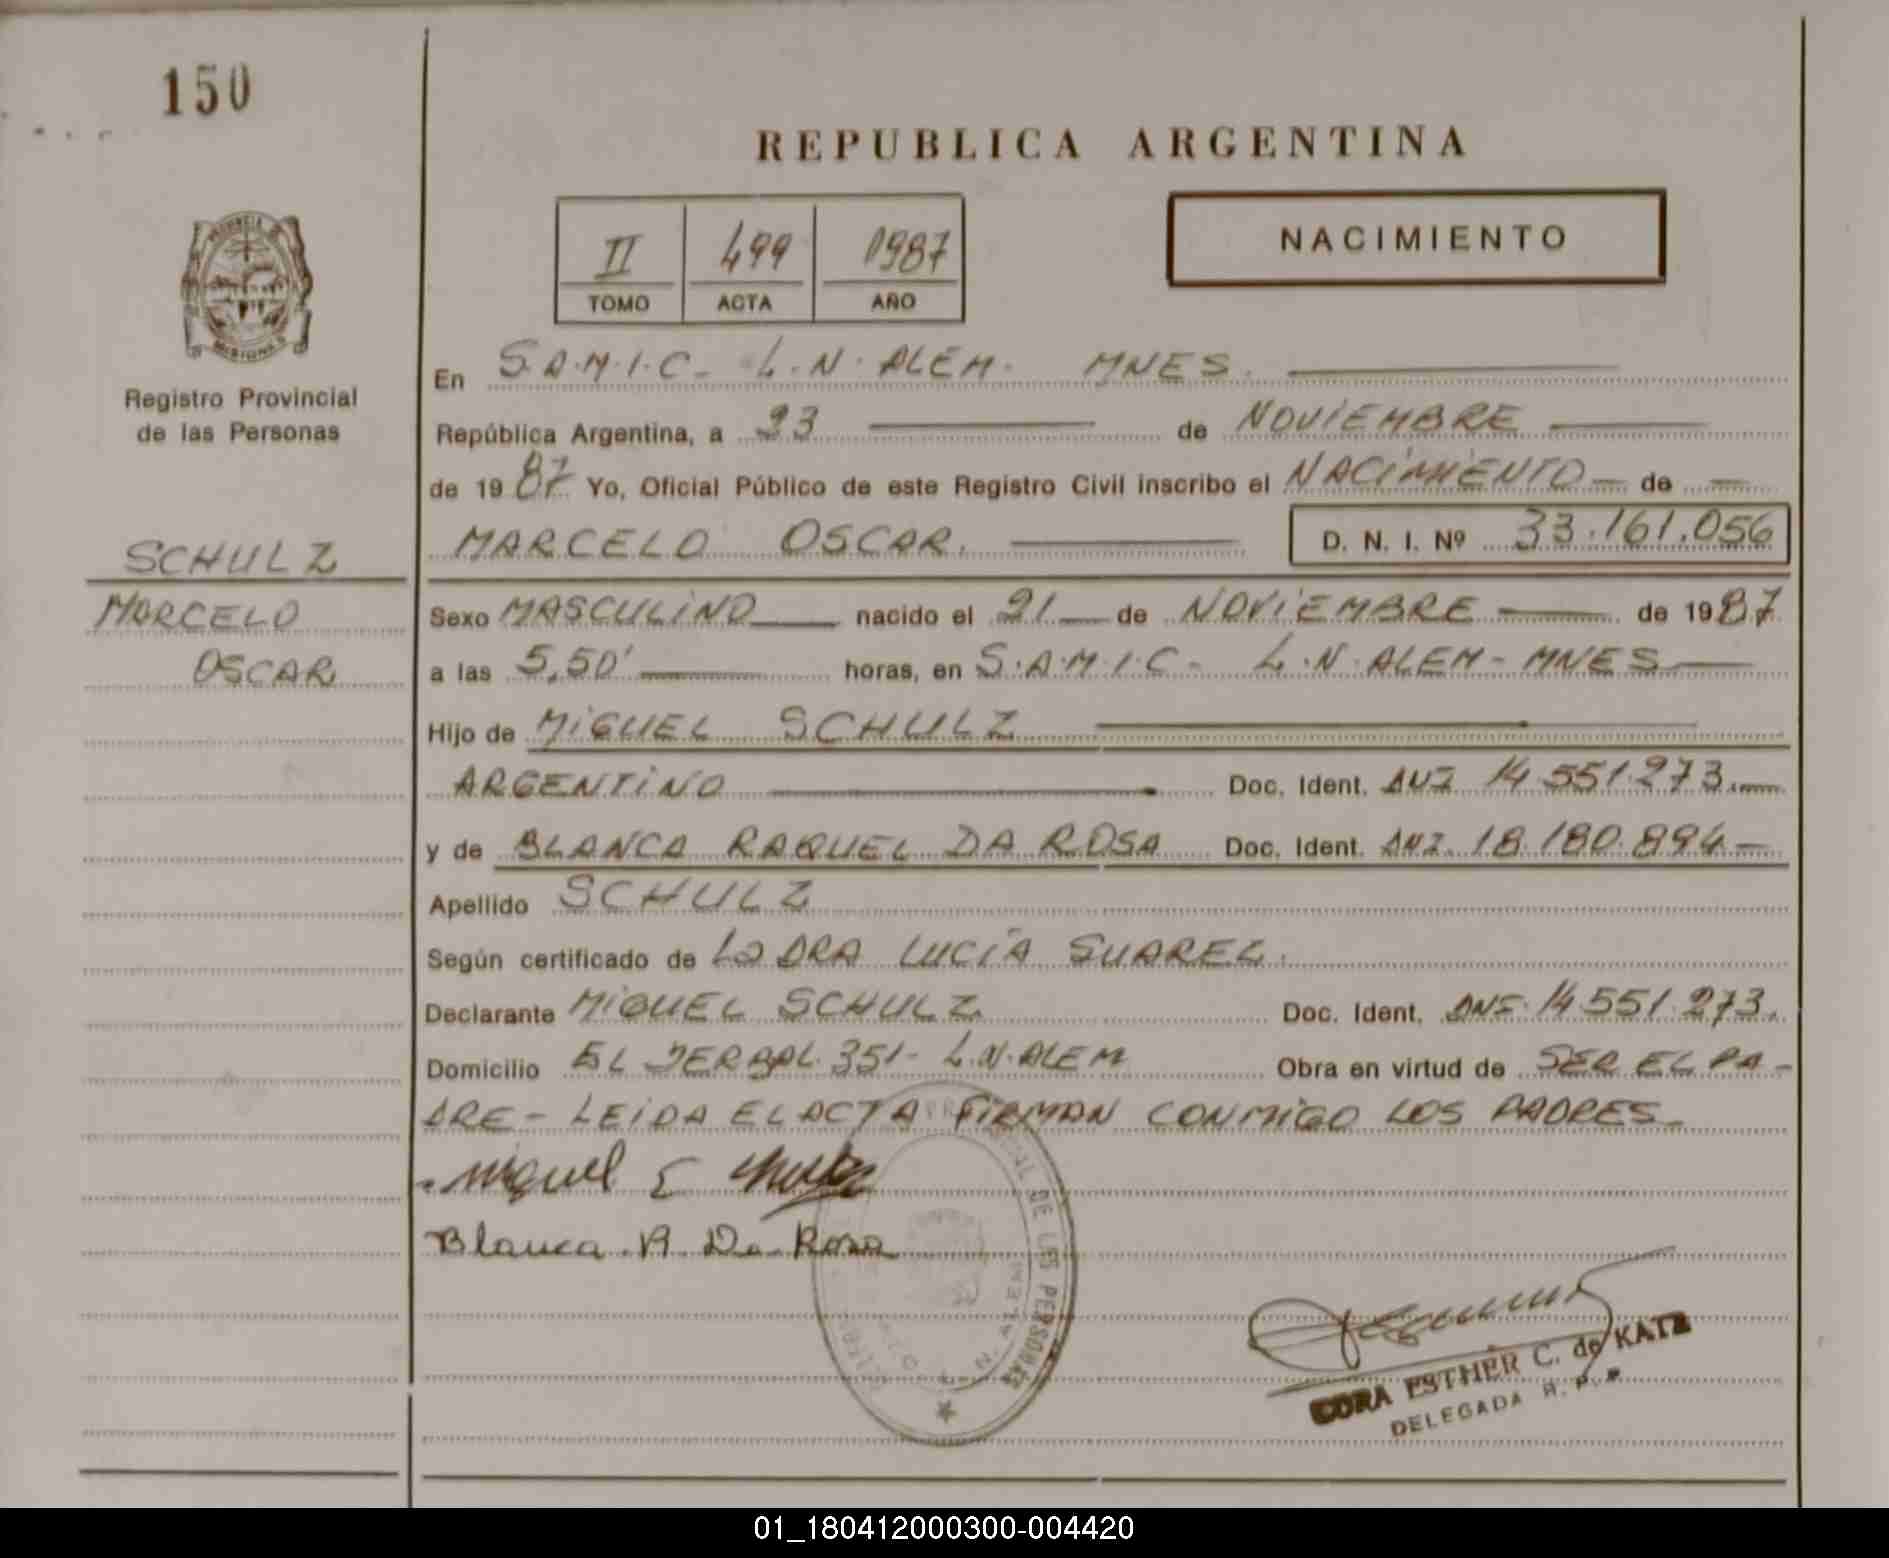 150
REPUBLICA ARGENTINA
II 499 1987
TOMO ACTA AÑO
NACIMIENTO
Registro Provincial
de las Personas
SCHULZ
MARCELO
OSCAR
En S.A.M.I.C- L.N.ALEM. MNES.
República Argentina, a 23 de NOVIEMBRE
de 1987 Yo, Oficial Público de este Registro Civil inscribo el NACIMIENTO — de —
MARCELO OSCAR. D. N. I. Nº 33.161.056
Sexo MASCULINO nacido el 21 de NOVIEMBRE de 1987
a las 5,50' horas, en S.A.M.I.C- L.N.ALEM-MNES
Hijo de MIGUEL SCHULZ
ARGENTINO Doc. Ident. DNI 14.551.273.
y de BLANCA RAQUEL DA ROSA Doc. Ident. DNI. 18.180.894-
Apellido SCHULZ
Según certificado de La DRA LUCÍA SUAREZ.
Declarante MIGUEL SCHULZ Doc. Ident. DNI. 14.551.273.
Domicilio EL YERBAL 351- L.N.ALEM Obra en virtud de SER EL PA-
DRE- LEIDA EL ACTA FIRMAN CONMIGO LOS PADRES-
Miguel E Schulz
Blanca R. Da Rosa
DE LAS PERSONAS
L. N. ALEM
CORA ESTHER C. de KATZ
DELEGADA R. P. P.
01_180412000300-004420